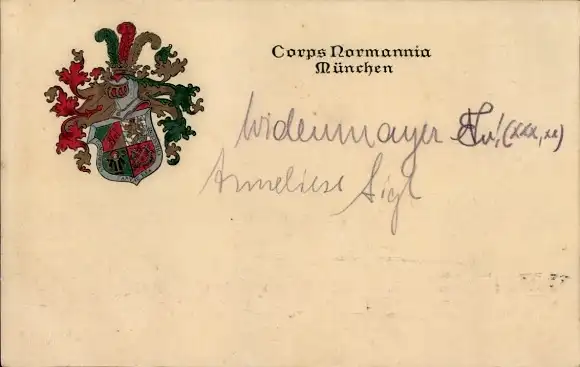 Corps Normannia
München
Widenmayer (xxx, xx)
Anneliese Sigl